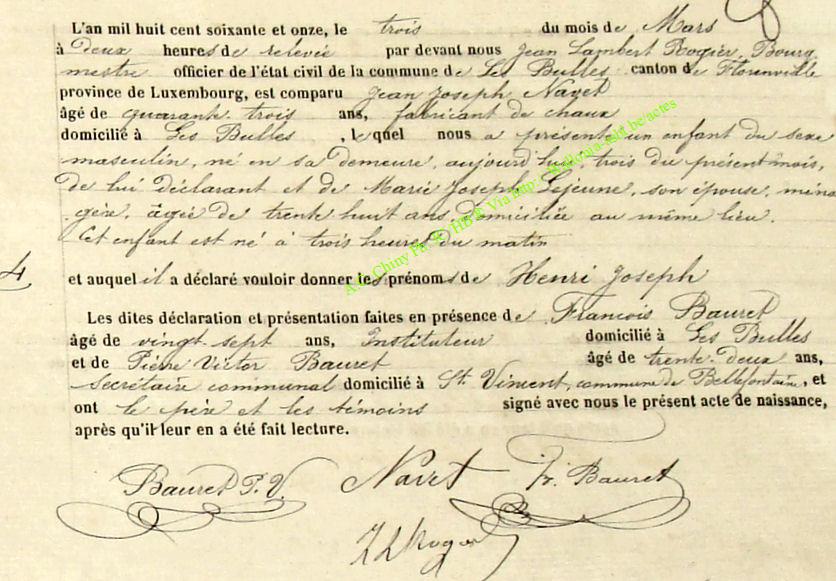 L'an mil huit cent soixante et onze, le trois du mois de Mars
à deux heures de relevée par devant nous Jean Lambert Rogier, Bourg
mestre officier de l'état civil de la commune de Les Bulles canton de Florenville
province de Luxembourg, est comparu Jean Joseph Navet
âgé de quarante trois ans, fabricant de chaux
domicilié à Les Bulles, lequel nous a présenté un enfant du sexe
masculin, né en sa demeure, aujourd'hui, trois du présent mois,
de lui déclarant et de Marie Joseph Lejeune, son épouse, ména
gère, âgée de trente huit ans, domiciliée au même lieu.
Cet enfant est né à trois heures du matin
4 et auquel il a déclaré vouloir donner les prénoms de Henri Joseph
Les dites déclaration et présentation faites en présence de François Bauret
âgé de vingt-sept ans, Instituteur domicilié à Les Bulles
et de Pierre Victor Bauret âgé de trente-deux ans,
secrétaire communal domicilié à St. Vincent, commune de Bellefontaine, et
ont le père et les témoins signé avec nous le présent acte de naissance,
après qu'il leur en a été fait lecture.
Bauret P. V. Navet Fr. Bauret
J L Rogier